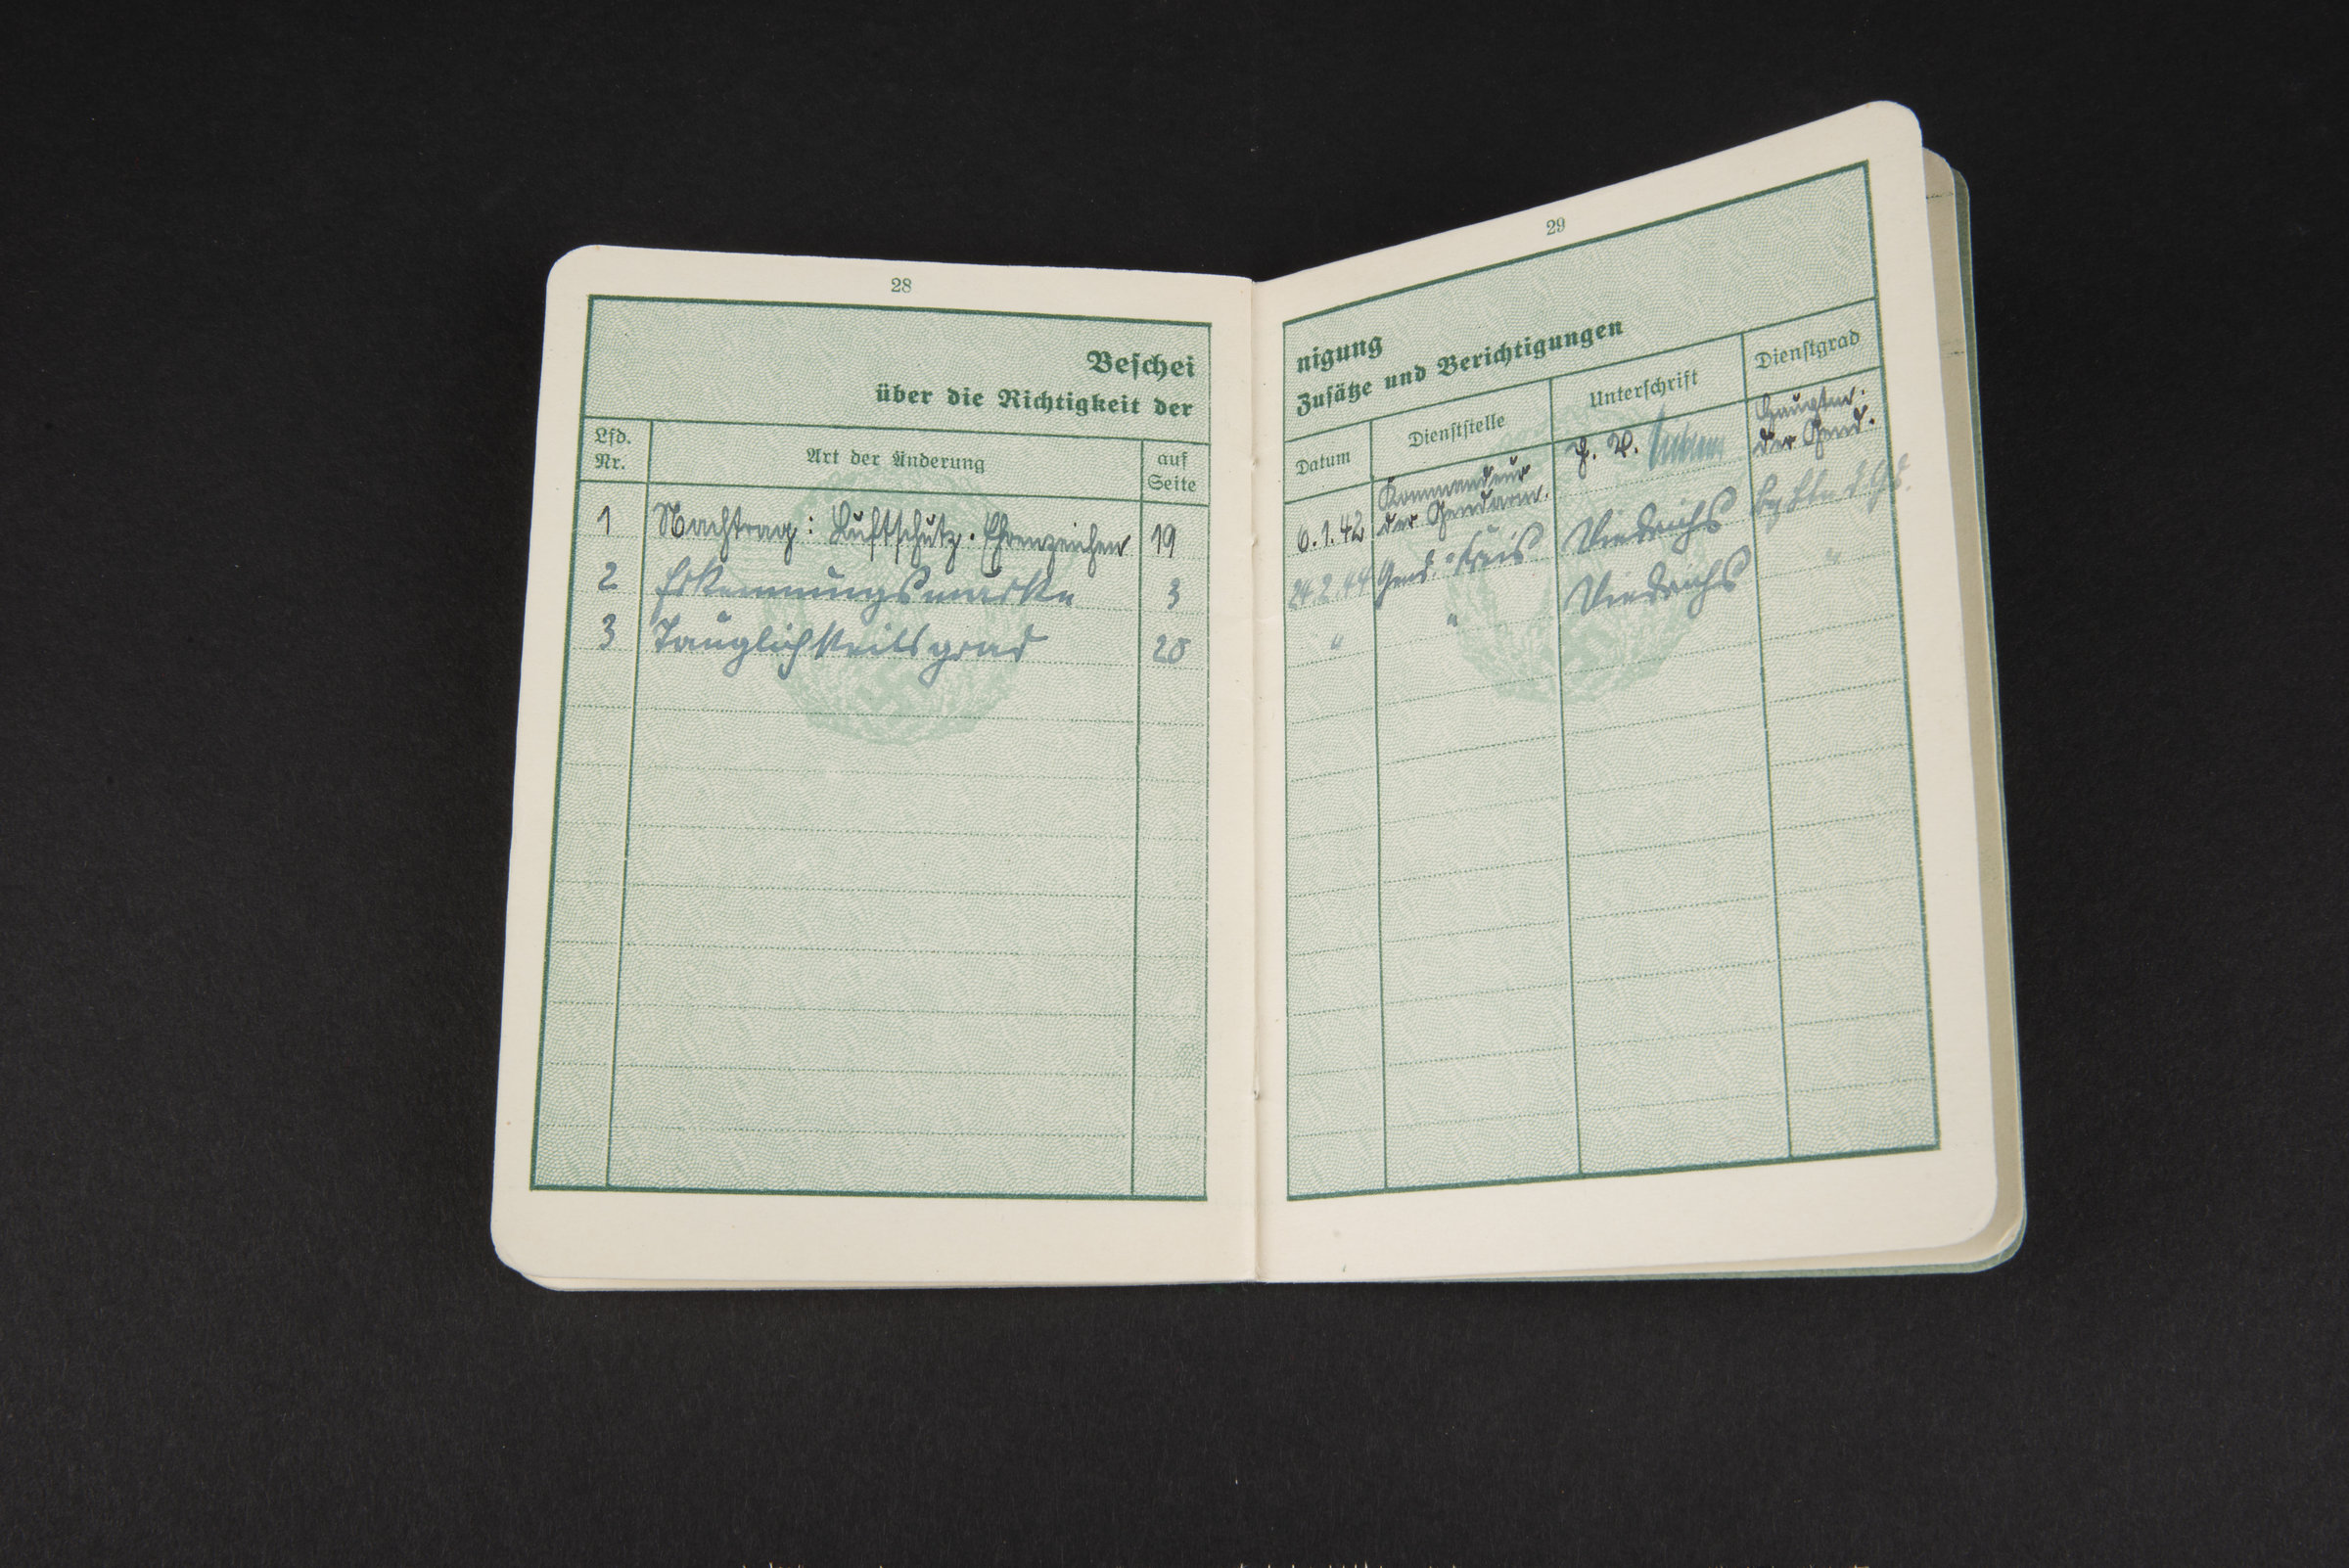 28
Beschei
über die Richtigkeit der
Lfd. Nr.
Art der Änderung
auf Seite
1 Nachtrag: Luftschutz-Ehrenzeichen 19
2 Erkennungsmarke 3
3 Tauglichkeitsgrad 20
29
nigung
Zusätze und Berichtigungen
Datum
Dienststelle
Unterschrift
Dienstgrad
6.1.42
Kommandeur
der Gendarm.
J. V.
Hauptm.
der Gend.
24.2.44 Gend.-Kreis
" " "